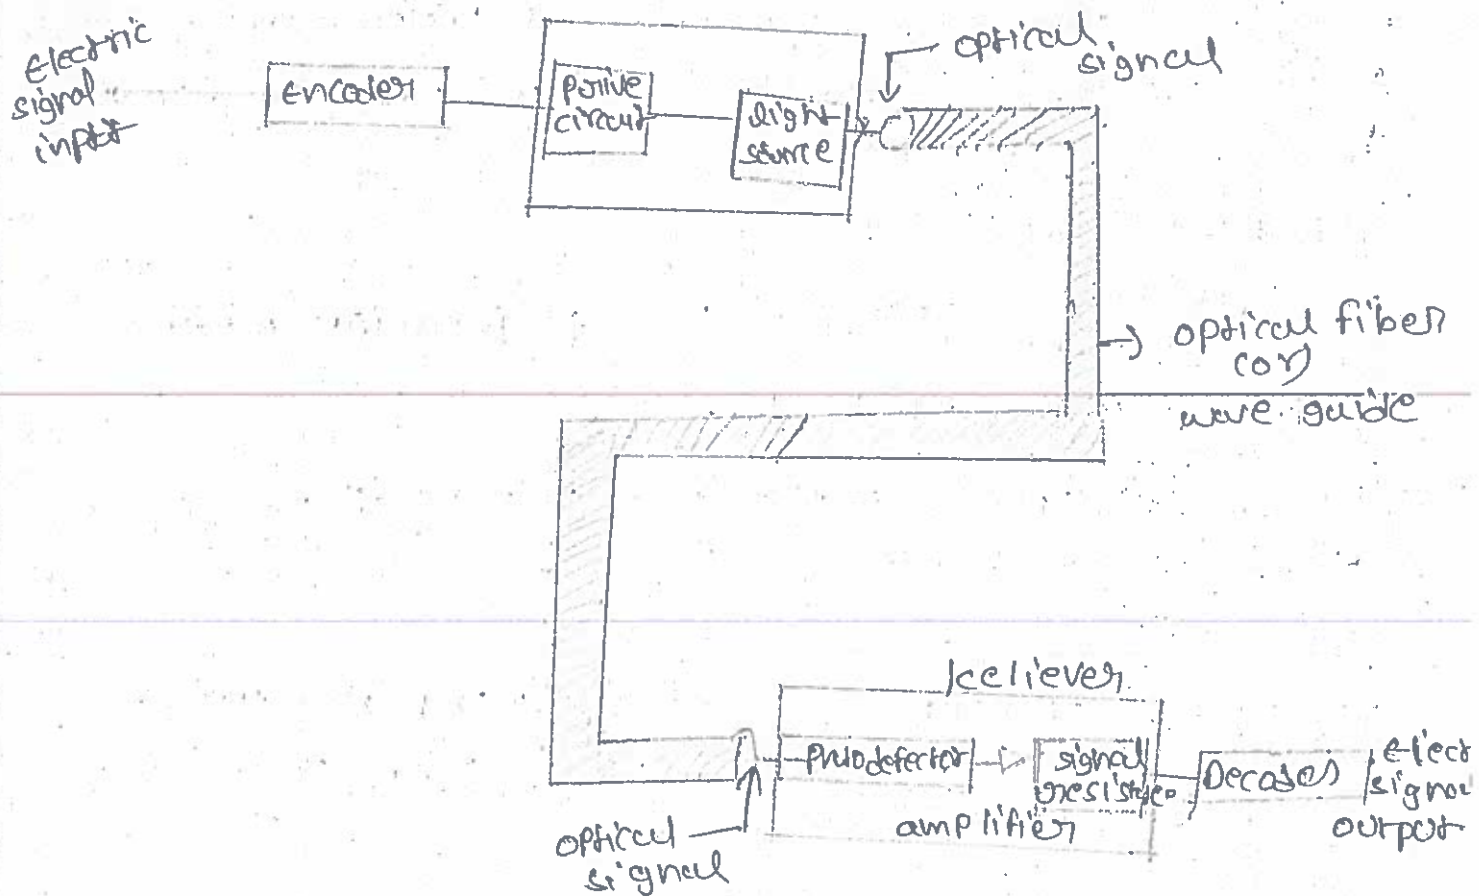 Electric
signal
input
Encoder
Drive
circuit
light
source
optical
signal
optical fiber
(or)
wave guide
Receiever
Photodefector
signal
amplifier
Decoder
elect
signal
output
optical
signal